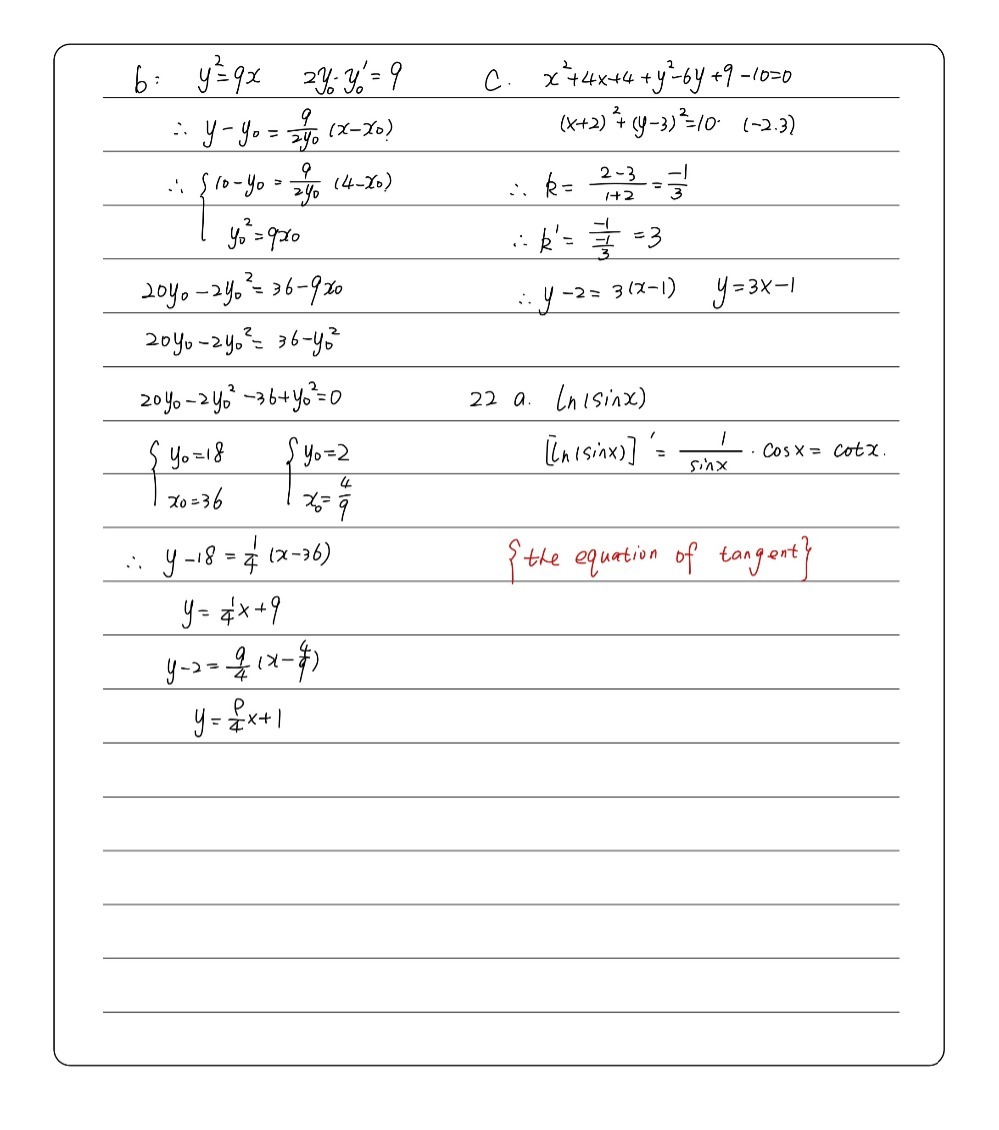 b: y²=9x 2y₀·y₀'=9
∴ y-y₀=9/(2y₀) (x-x₀)
∴ { 10-y₀=9/(2y₀) (4-x₀)
y₀²=9x₀
20y₀-2y₀²=36-9x₀
20y₀-2y₀²=36-y₀²
20y₀-2y₀²-36+y₀²=0
{ y₀=18 { y₀=2
x₀=36 x₀=4/9
∴ y-18=1/4 (x-36)
y=1/4x+9
y-2=9/4 (x-4/9)
y=9/4x+1
C. x²+4x+4+y²-6y+9-10=0
(x+2)²+(y-3)²=10. (-2.3)
∴ k=(2-3)/(1+2)=-1/3
∴ k'=-1/(-1/3)=3
∴ y-2=3(x-1) y=3x-1
22 a. ln(sinx)
[ln(sinx)]'=1/sinx · cosx=cotx.
{the equation of tangent}